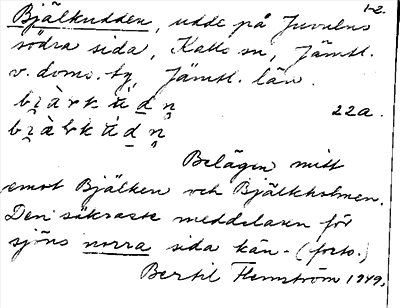 1-2.
Bjälkudden, udde på Juvulns
södra sida, Kalls sn, Jämtl.
v. doms. tg, Jämtl. län.
22a.
Belägen mitt
emot Bjälken och Bjälkholmen.
Den säkraste meddelaren för
sjöns norra sida kän- (forts.)
Bertil Flemström 1949.